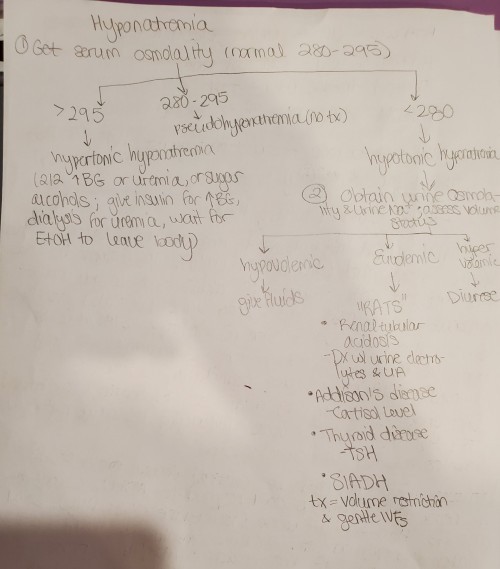 Hyponatremia
① Get serum osmolality (normal 280-295)
>295
280-295
<280
pseudohyponatremia (no tx)
hypertonic hyponatremia
(2/2 ↑BG or uremia, or sugar
alcohols; give insulin for ↑BG,
dialysis for uremia, wait for
EtOH to leave body)
hypotonic hyponatremia
② Obtain urine osmola-
lity & urine Na+; assess volume
status
hypovolemic
Euvolemic
hyper
volemic
give fluids
"RATS"
Diurese
• Renal tubular
acidosis
- Dx w/ urine electro-
lytes & UA
• Addison's disease
- Cortisol level
• Thyroid disease
- TSH
• SIADH
tx = volume restriction
& gentle IVFs